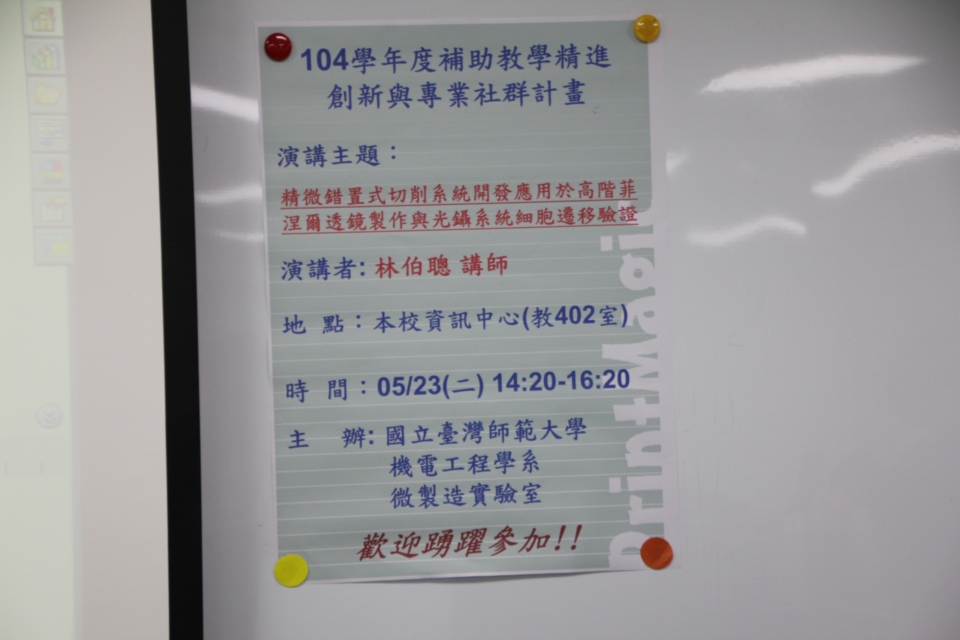 104學年度補助教學精進
創新與專業社群計畫
演講主題：
精微錯置式切削系統開發應用於高階菲
涅爾透鏡製作與光鑷系統細胞遷移驗證
演講者: 林伯聰 講師
地 點：本校資訊中心(教402室)
時 間：05/23(二) 14:20-16:20
主 辦: 國立臺灣師範大學
機電工程學系
微製造實驗室
歡迎踴躍參加!!